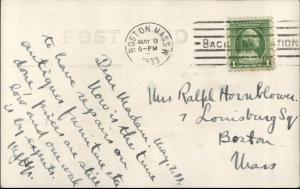 POST CARD
BOSTON, MASS.
MAY 9
6-PM
1933
BACK
NATION
1
Dear Madam, May 7, 33.
Now is the time
to have repairs on
antiques, furniture etc
done, prices are still
low and our work
is by experts.
Mrs Ralph Hornblower
7 Louisburg Sq
Boston
Mass